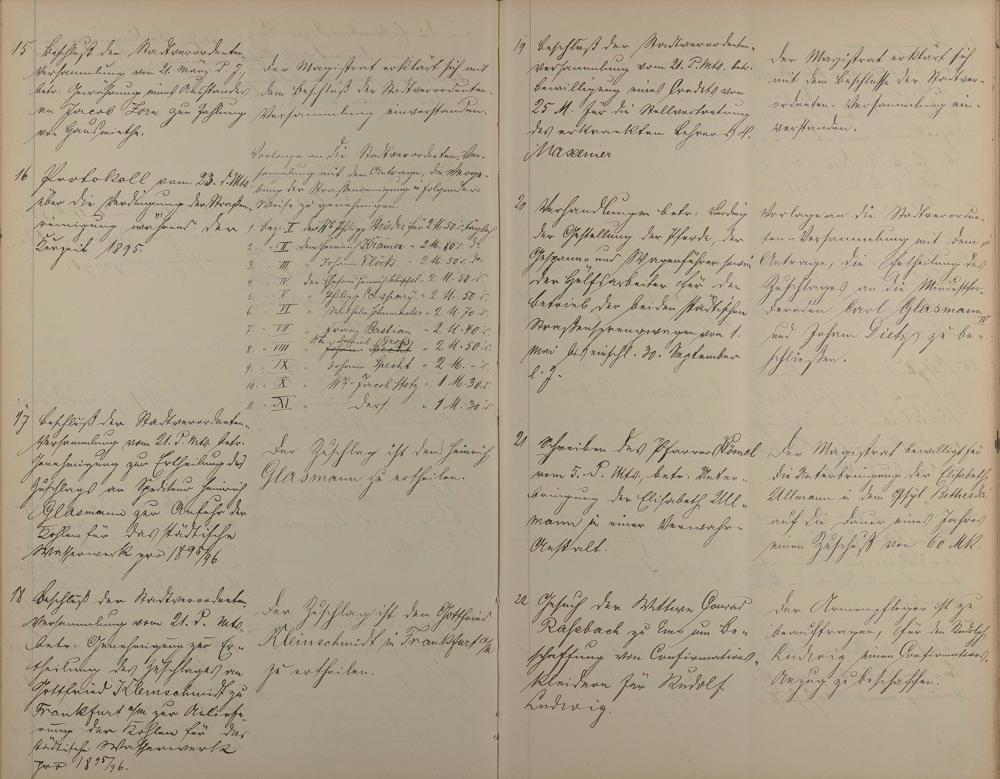 15 Beschluß der Stadtverordneten
Versammlung vom 21. März d. J.,
betr: Gewährung eines
an Jacob Zorn zur Zahlung
von Hausmiethe.
Der Magistrat erklärt sich mit
dem Beschluß der Stadtverordneten-
Versammlung einverstanden.
16 Protokoll vom 23. d. Mts.
über die Verdingung der Straßen-
reinigung während der
Kurzeit 1895.
Vorlage an die Stadtverordneten-Ver-
sammlung mit dem Antrage, die Verge-
bung der Straßenreinigung in folgender
Weise zu genehmigen:
1. Bez. I der Philipp für 2 M. 50 täglich
2. " II dem Heinrich Kramer " 2 M. 80
3. " III " Johann Flöck " 2 M. 50
4. " IV der Heinrich " 2 M. 50
5. " V " Philipp " 2 M. 50
6. " VI " Wilhelm " 2 M. 70
7. " VII " Franz Bastian " 2 M. 40
8. " VIII " 2 M. 50
9. " IX " Johann Specht " 2 M. -
10. " X " Jacob " 1 M. 30
11. " XI " Ders. " 1 M. 30
17 Beschluß der Stadtverordneten-
Versammlung vom 21. d. Mts. betr.
Genehmigung zur Ertheilung des
Zuschlags an Spediteur Heinrich
Glasmann zur Anfuhr der
Kohlen für das städtische
Wasserwerk pro 1895/96.
Der Zuschlag ist dem Heinrich
Glasmann zu ertheilen.
18 Beschluß der Stadtverordneten
Versammlung vom 21. d. Mts.
betr: Genehmigung zur Er-
theilung des Zuschlages an
Gottfried Kleinschmidt zu
Frankfurt a/M zur Anliefe-
rung der Kohlen für das
städtische Wasserwerk
pro 1895/96.
Der Zuschlag ist dem Gottfried
Kleinschmidt in Frankfurt a/M
zu ertheilen.
19 Beschluß der Stadtverordneten-
Versammlung vom 21. d. Mts. betr.
Bewilligung eines Credits von
25 M. für die Stellvertretung
des erkrankten Lehrers
Maxeiner
Der Magistrat erklärt sich
mit dem Beschlusse der Stadtver-
ordneten-Versammlung ein-
verstanden.
20 Verhandlungen betr: Verding
der Gestellung der Pferde, der
Gespanne und Wagenführer sowie
der Hülfsarbeiter für den
Betrieb der beiden städtischen
Straßensprengwagen vom 1.
Mai bis einschl. 30. September
l. J.
Vorlage an die Stadtverordne-
ten-Versammlung mit dem
Antrage, die Ertheilung des
Zuschlages an die Mindestfor-
dernden Carl Glasmann IV
und Johann Dietz zu be-
schließen.
21 Schreiben des Pfarrers Wömel
vom 5. d. Mts, betr: Unter-
bringung der Elisabeth Ull-
mann in einer Verwahr-
Anstalt.
Der Magistrat bewilligt für
die Unterbringung der Elisabeth
Ullmann in dem Asyl Bethesda
auf die Dauer eines Jahres
einen Zuschuß von 60 Mk.
22 Gesuch der Wittwe Conrad
Raßbach zu Ems um Be-
schaffung von Confirmations-
kleidern für Rudolf
Ludwig.
Der Armenpfleger ist zu
beauftragen, für den Rudolf
Ludwig einen Confirmations-
Anzug zu beschaffen.